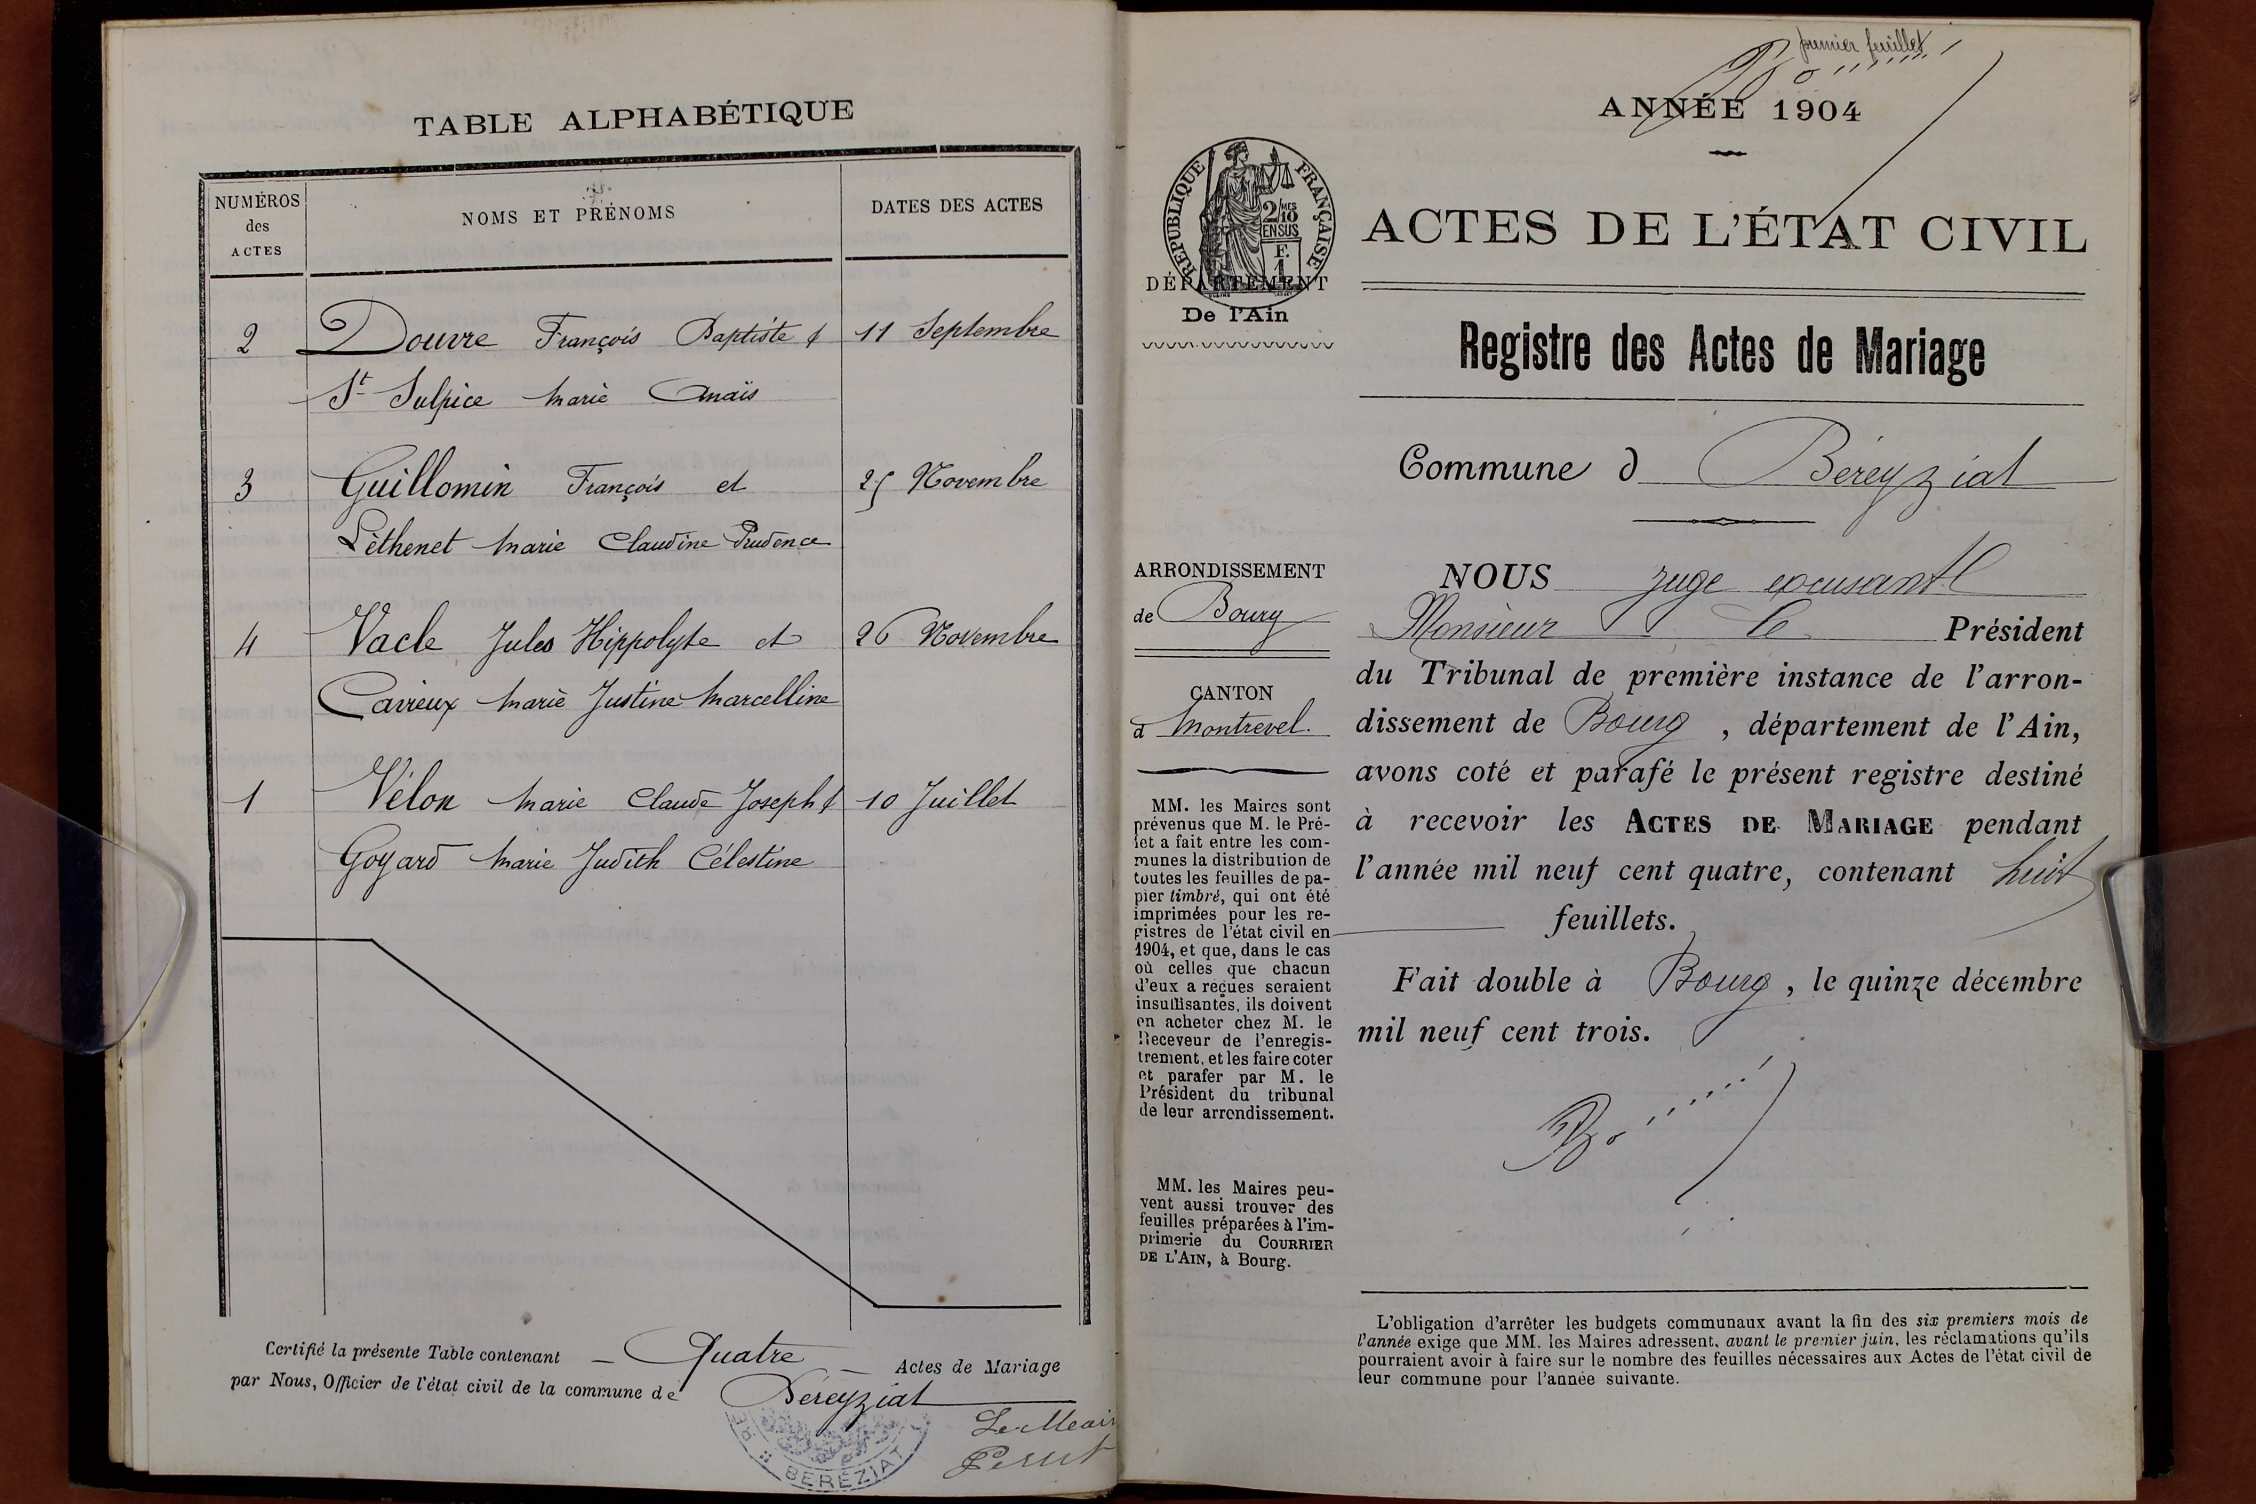 TABLE ALPHABÉTIQUE
NUMÉROS
des
ACTES
NOMS ET PRÉNOMS
DATES DES ACTES
2 Douvre François Baptiste & 11 Septembre
St Sulpice Marie Anaïs
3 Guillomin François et 25 Novembre
Léthenet Marie Claudine Prudence
4 Vacle Jules Hippolyte et 26 Novembre
Cavreux Marie Justine Marcelline
1 Vélon Marie Claude Joseph & 10 Juillet
Goyard Marie Judith Célestine
Certifié la présente Table contenant Quatre Actes de Mariage
par Nous, Officier de l'état civil de la commune de Béreyziat
Le Maire
BÉRÉZIAT
premier feuillet
ANNÉE 1904
RÉPUBLIQUE FRANÇAISE
2/10 MES
EN SUS
F.
1
DÉPARTEMENT
De l'Ain
ACTES DE L'ÉTAT CIVIL
Registre des Actes de Mariage
Commune d Béreyziat
ARRONDISSEMENT
de Bourg
CANTON
d Montrevel.
MM. les Maires sont
prévenus que M. le Pré-
fet a fait entre les com-
munes la distribution de
toutes les feuilles de pa-
pier timbré, qui ont été
imprimées pour les re-
gistres de l'état civil en
1904, et que, dans le cas
où celles que chacun
d'eux a reçues seraient
insuffisantes, ils doivent
en acheter chez M. le
Receveur de l'enregis-
trement, et les faire coter
et parafer par M. le
Président du tribunal
de leur arrondissement.
MM. les Maires peu-
vent aussi trouver des
feuilles préparées à l'im-
primerie du COURRIER
DE L'AIN, à Bourg.
NOUS juge
Monsieur le Président
du Tribunal de première instance de l'arron-
dissement de Bourg, département de l'Ain,
avons coté et parafé le présent registre destiné
à recevoir les ACTES DE MARIAGE pendant
l'année mil neuf cent quatre, contenant huit
feuillets.
Fait double à Bourg, le quinze décembre
mil neuf cent trois.
L'obligation d'arrêter les budgets communaux avant la fin des six premiers mois de
l'année exige que MM. les Maires adressent, avant le premier juin, les réclamations qu'ils
pourraient avoir à faire sur le nombre des feuilles nécessaires aux Actes de l'état civil de
leur commune pour l'année suivante.